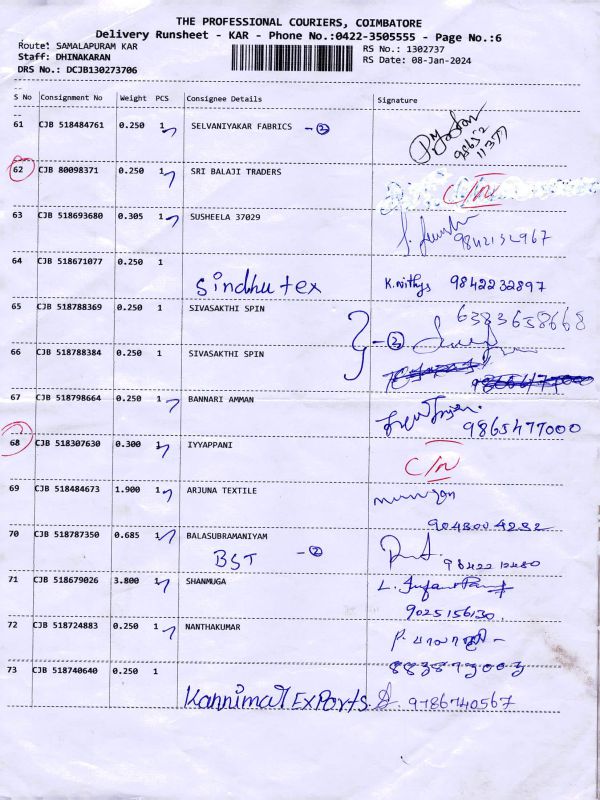 THE PROFESSIONAL COURIERS, COIMBATORE
Delivery Runsheet - KAR - Phone No.:0422-3505555 - Page No.:6
Route: SAMALAPURAM KAR RS No.: 1302737
Staff: DHINAKARAN RS Date: 08-Jan-2024
DRS No.: DCJB130273706
S No Consignment No Weight PCS Consignee Details Signature
61 CJB 518484761 0.250 1 SELVANIYAKAR FABRICS - 2
98652
11377
62 CJB 80098371 0.250 1 SRI BALAJI TRADERS C/N
63 CJB 518693680 0.305 1 SUSHEELA 37029
9842132967
64 CJB 518671077 0.250 1
Sindhu tex K.nithys 9842232897
65 CJB 518788369 0.250 1 SIVASAKTHI SPIN 6383658668
- 2
66 CJB 518788384 0.250 1 SIVASAKTHI SPIN
67 CJB 518798664 0.250 1 BANNARI AMMAN
9865477000
68 CJB 518307630 0.300 1 IYYAPPANI C/N
69 CJB 518484673 1.900 1 ARJUNA TEXTILE
9048004232
70 CJB 518787350 0.685 1 BALASUBRAMANIYAM
BST - 2
71 CJB 518679026 3.800 1 SHANMUGA
9025156130
72 CJB 518724883 0.250 1 NANTHAKUMAR
8838873003
73 CJB 518740640 0.250 1
Kannimal Exports. 9786740567